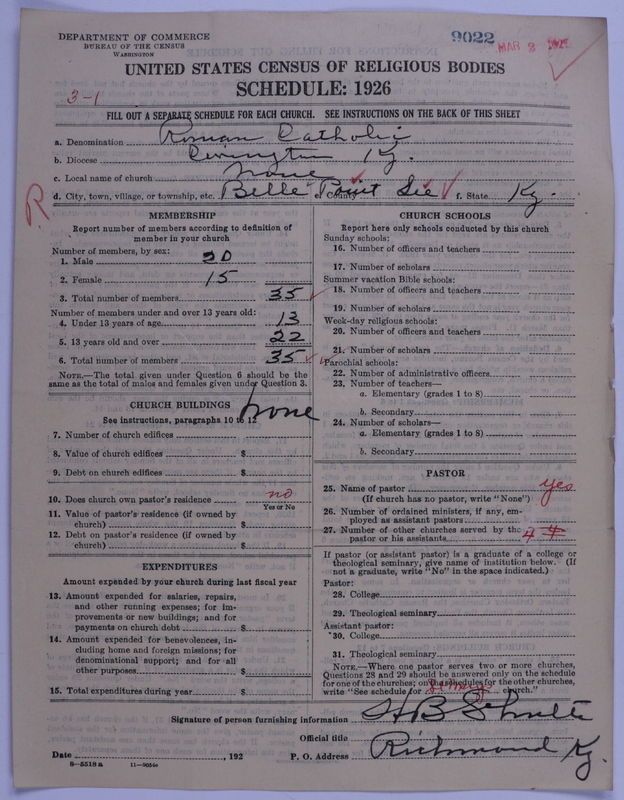 DEPARTMENT OF COMMERCE
BUREAU OF THE CENSUS
WASHINGTON
9022
MAR 8
UNITED STATES CENSUS OF RELIGIOUS BODIES
SCHEDULE: 1926
3-1
FILL OUT A SEPARATE SCHEDULE FOR EACH CHURCH. SEE INSTRUCTIONS ON THE BACK OF THIS SHEET
a. Denomination Roman Catholic
b. Diocese Covington Ky.
c. Local name of church none
d. City, town, village, or township, etc. Belle Point e. County Lee f. State Ky.
R
MEMBERSHIP
Report number of members according to definition of
member in your church
Number of members, by sex:
1. Male 20
2. Female 15
3. Total number of members 35
Number of members under and over 13 years old:
4. Under 13 years of age 13
5. 13 years old and over 22
6. Total number of members 35
NOTE.—The total given under Question 6 should be
same as the total of males and females given under Question 3.
CHURCH BUILDINGS none
See instructions, paragraphs 10 to 12
7. Number of church edifices
8. Value of church edifices $
9. Debt on church edifices $
10. Does church own pastor's residence no
Yes or No
11. Value of pastor's residence (if owned by
church) $
12. Debt on pastor's residence (if owned by
church) $
EXPENDITURES
Amount expended by your church during last fiscal year
13. Amount expended for salaries, repairs,
and other running expenses; for im-
provements or new buildings; and for
payments on church debt $
14. Amount expended for benevolences, in-
cluding home and foreign missions; for
denominational support; and for all
other purposes $
15. Total expenditures during year $
CHURCH SCHOOLS
Report here only schools conducted by this church
Sunday schools:
16. Number of officers and teachers
17. Number of scholars
Summer vacation Bible schools:
18. Number of officers and teachers
19. Number of scholars
Week-day religious schools:
20. Number of officers and teachers
21. Number of scholars
Parochial schools:
22. Number of administrative officers
23. Number of teachers—
a. Elementary (grades 1 to 8)
b. Secondary
24. Number of scholars—
a. Elementary (grades 1 to 8)
b. Secondary
PASTOR
25. Name of pastor yes
(If church has no pastor, write "None")
26. Number of ordained ministers, if any, em-
ployed as assistant pastors
27. Number of other churches served by the
pastor or his assistants 4 4
If pastor (or assistant pastor) is a graduate of a college or
theological seminary, give name of institution below. (If
not a graduate, write "No" in the space indicated.)
Pastor:
28. College
29. Theological seminary
Assistant pastor:
30. College
31. Theological seminary
NOTE.—Where one pastor serves two or more churches,
Questions 28 and 29 should be answered only on the schedule
for one of the churches; on the schedules for the other churches,
write "See schedule for church."
Signature of person furnishing information H B Schulte
Official title
Date , 192 P. O. Address Richmond Ky.
8—5518 a 11—9054a